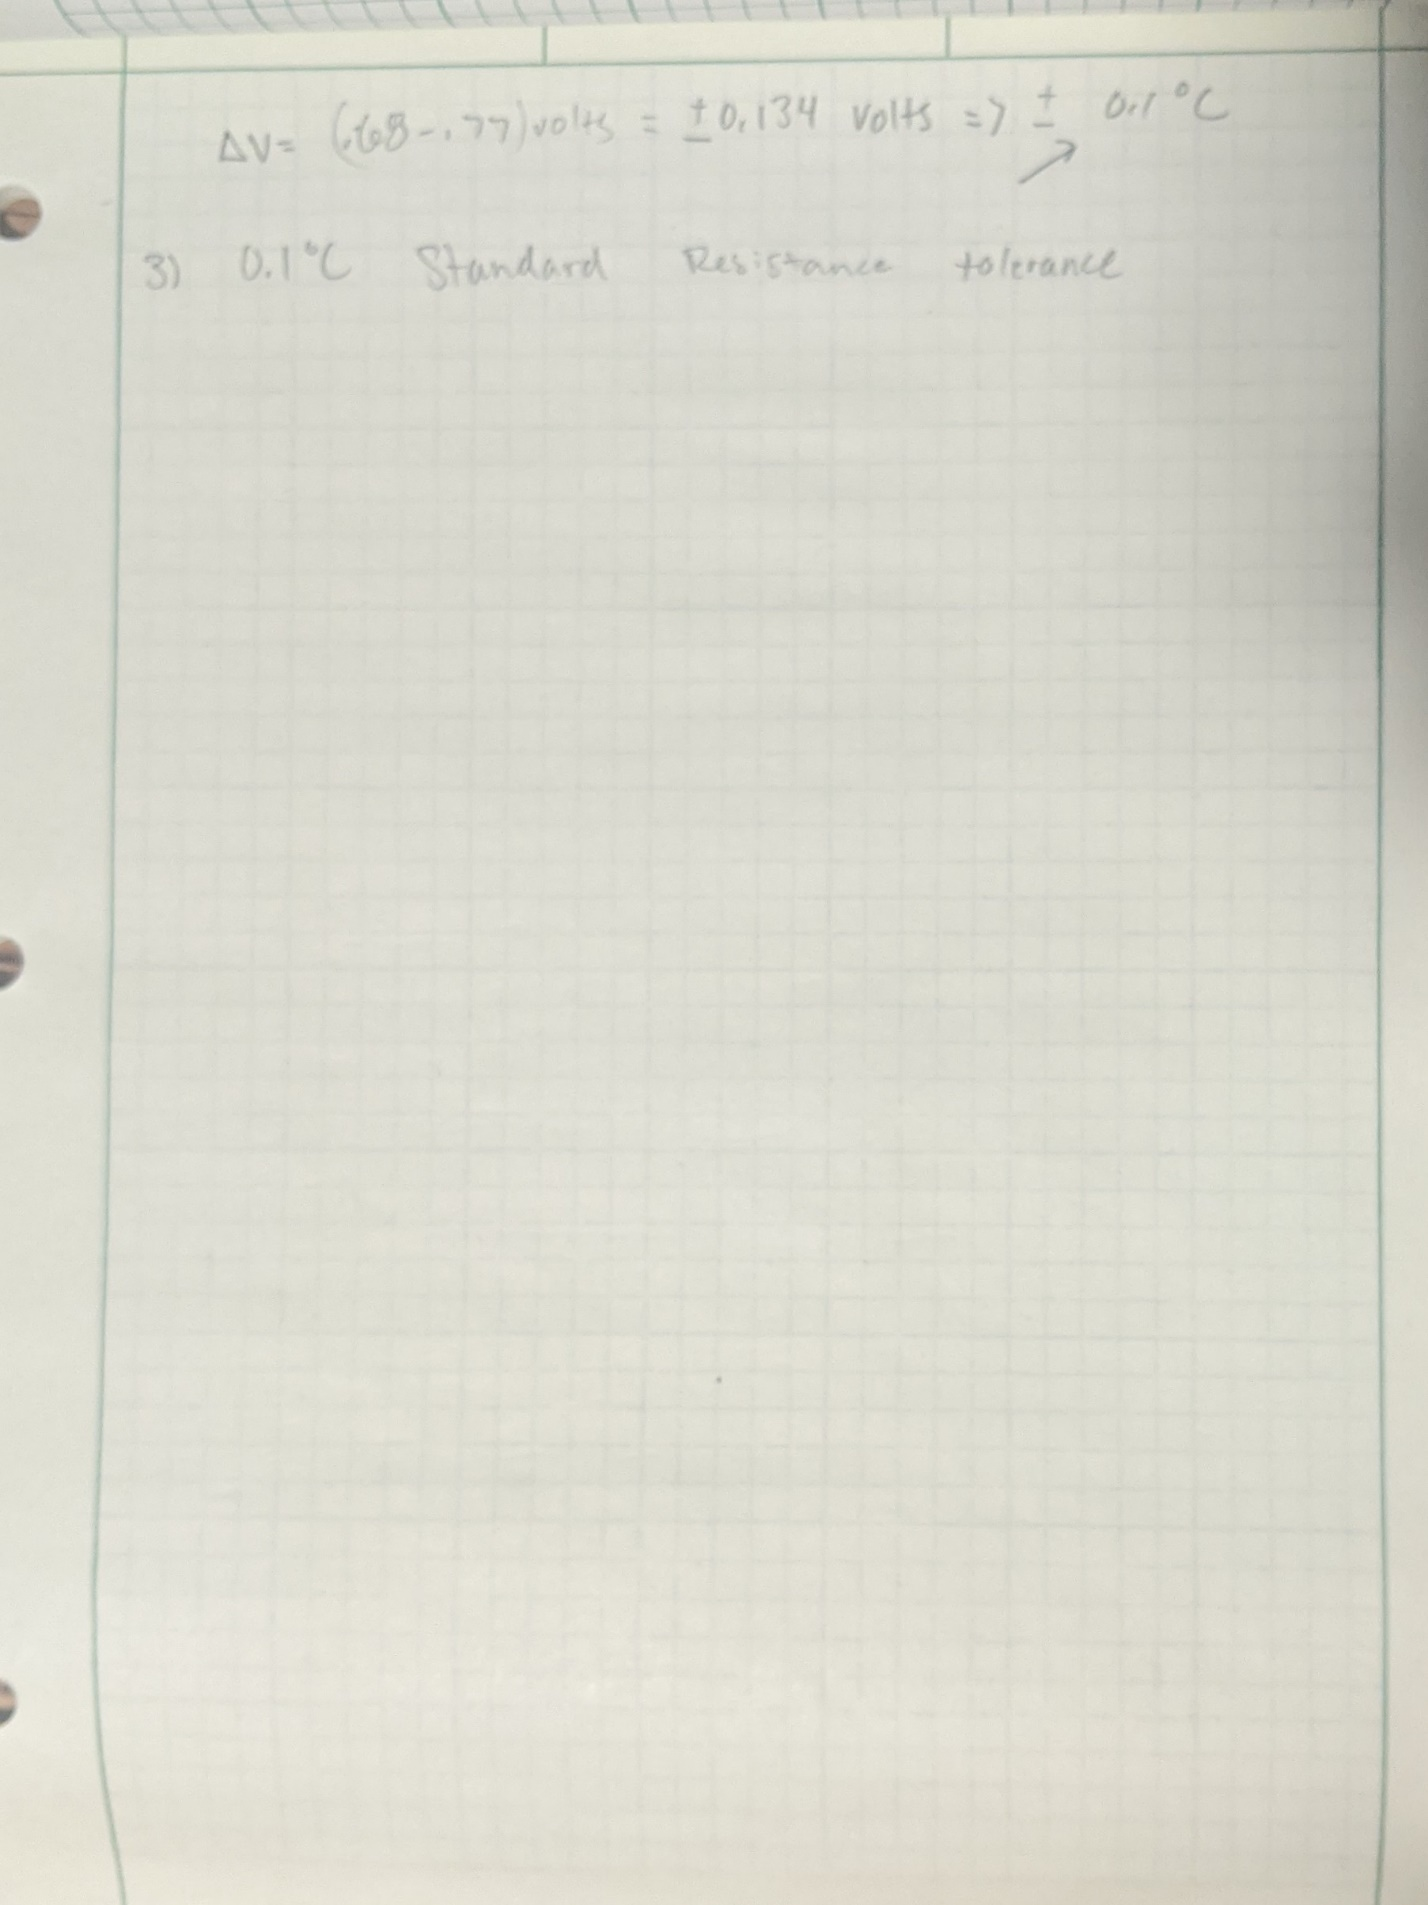 ΔV= (.68-.77)volts = ±0.134 volts => ± 0.1°C
3) 0.1°C Standard Resistance tolerance